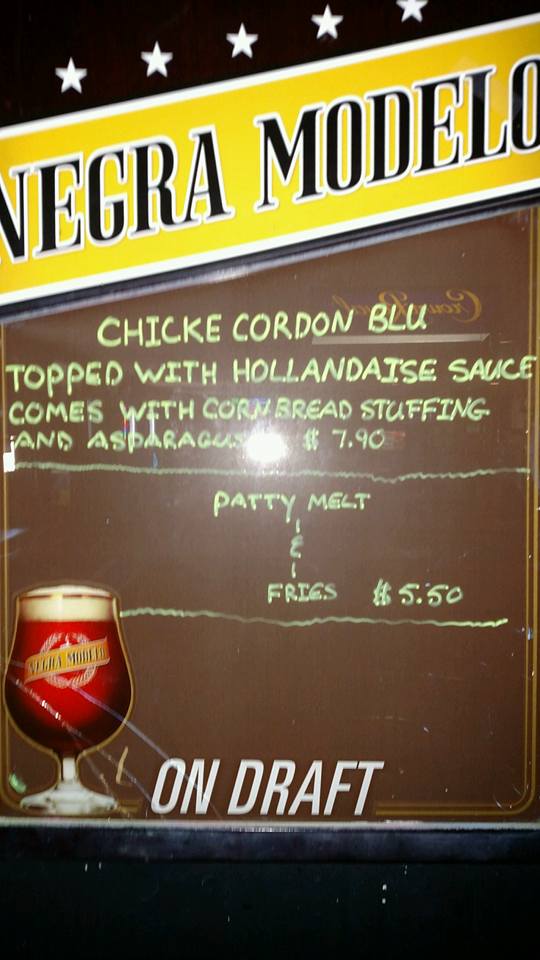 NEGRA MODELO
Crown Royal
CHICKE CORDON BLU
TOPPED WITH HOLLANDAISE SAUCE
COMES WITH CORN BREAD STUFFING
AND ASPARAGUS $ 7.90
PATTY MELT
&
FRIES $5.50
NEGRA MODELO
ON DRAFT